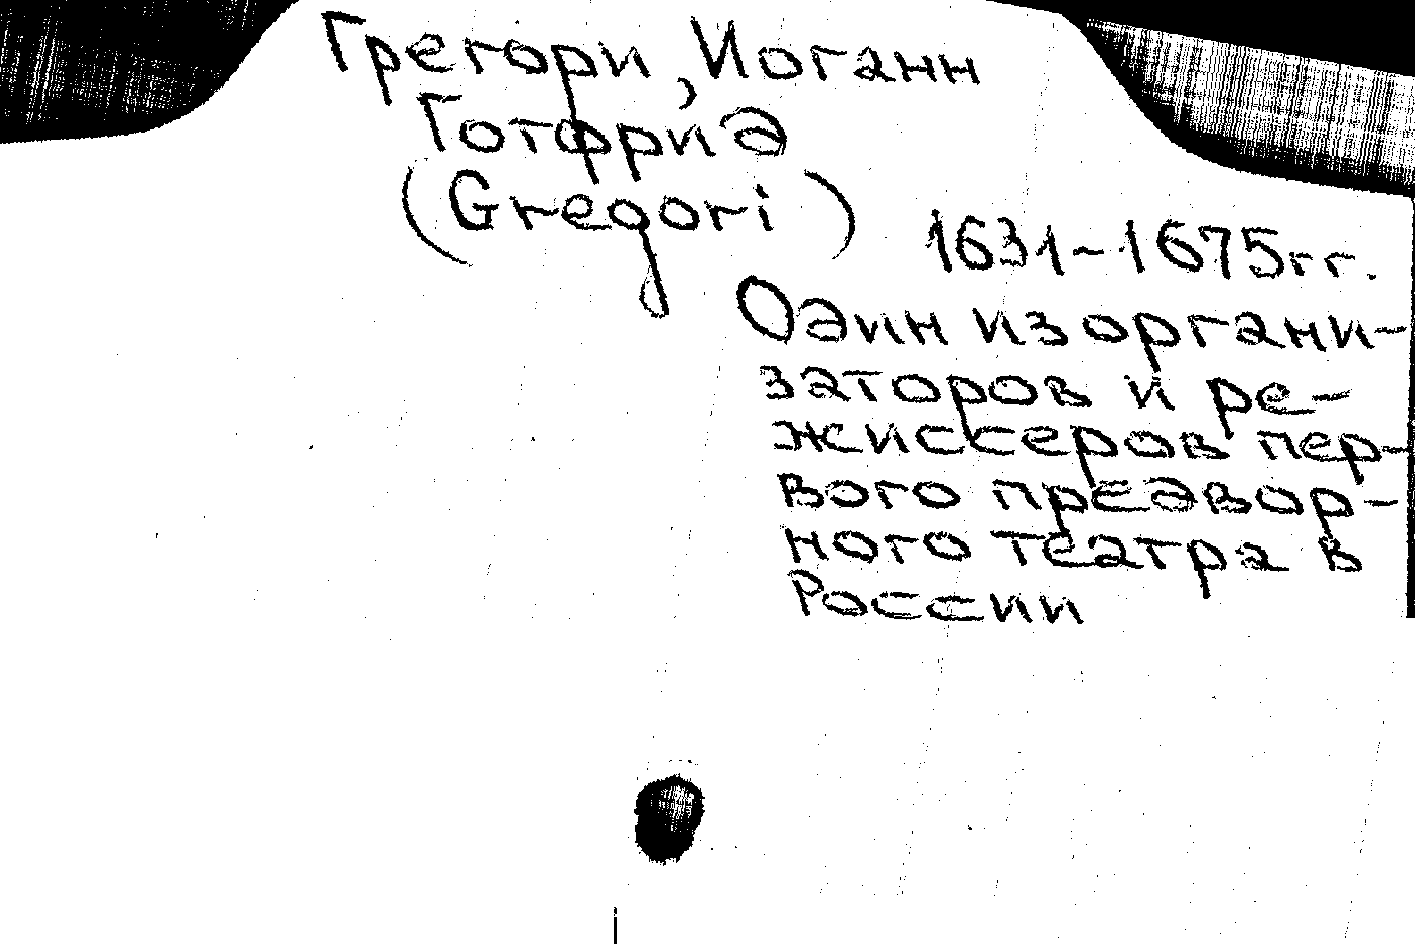 Грегори, Иоганн
Готфрид
(Gregori)
1631-1675гг.
Один из органи-
заторов и ре-
жиссеров пер-
вого предвор-
ного театра в
России